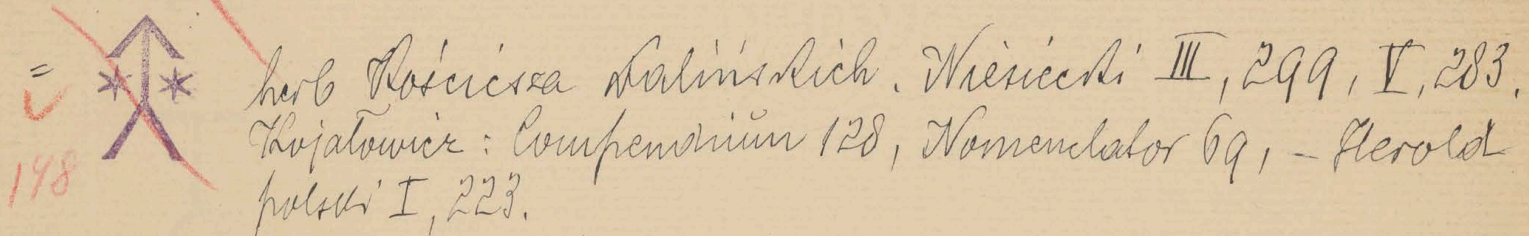 herb Kościesza Dalińskich. Niesiecki III, 299, V, 283.
Kojałowicz: Compendium 128, Nomenclator 69, – Herold
148
polski I, 223.